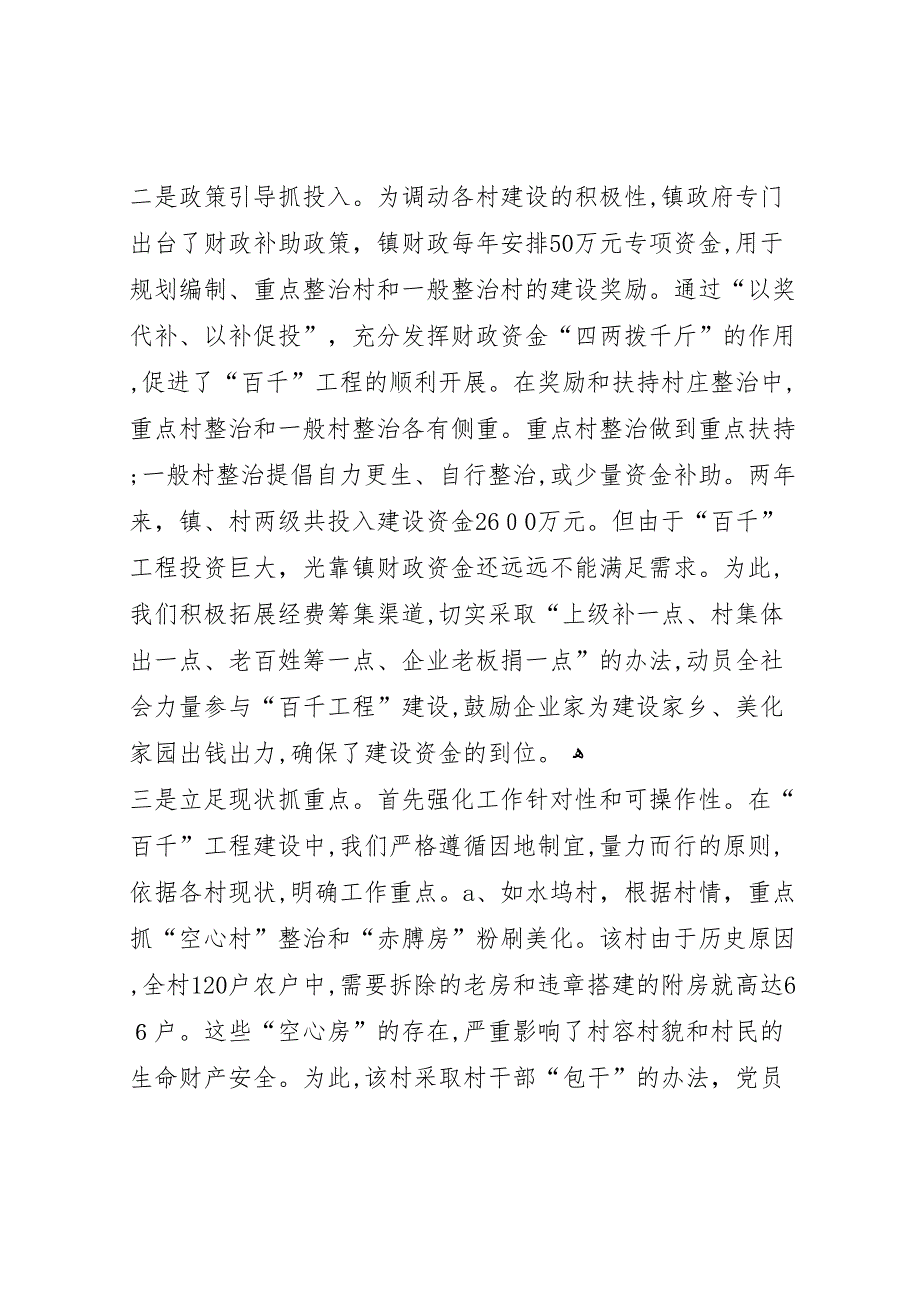 二是政策引导抓投入。为调动各村建设的积极性,镇政府专门
出台了财政补助政策，镇财政每年安排50万元专项资金,用于
规划编制、重点整治村和一般整治村的建设奖励。通过“以奖
代补、以补促投”，充分发挥财政资金“四两拨千斤”的作用
,促进了“百千”工程的顺利开展。在奖励和扶持村庄整治中,
重点村整治和一般村整治各有侧重。重点村整治做到重点扶持
;一般村整治提倡自力更生、自行整治,或少量资金补助。两年
来，镇、村两级共投入建设资金26００万元。但由于“百千”
工程投资巨大，光靠镇财政资金还远远不能满足需求。为此,
我们积极拓展经费筹集渠道,切实采取“上级补一点、村集体
出一点、老百姓筹一点、企业老板捐一点”的办法,动员全社
会力量参与“百千工程”建设,鼓励企业家为建设家乡、美化
家园出钱出力,确保了建设资金的到位。 ﻫ
三是立足现状抓重点。首先强化工作针对性和可操作性。在“
百千”工程建设中,我们严格遵循因地制宜,量力而行的原则,
依据各村现状,明确工作重点。a、如水坞村，根据村情，重点
抓“空心村”整治和“赤膊房”粉刷美化。该村由于历史原因
,全村120户农户中,需要拆除的老房和违章搭建的附房就高达6
６户。这些“空心房”的存在,严重影响了村容村貌和村民的
生命财产安全。为此,该村采取村干部“包干”的办法，党员